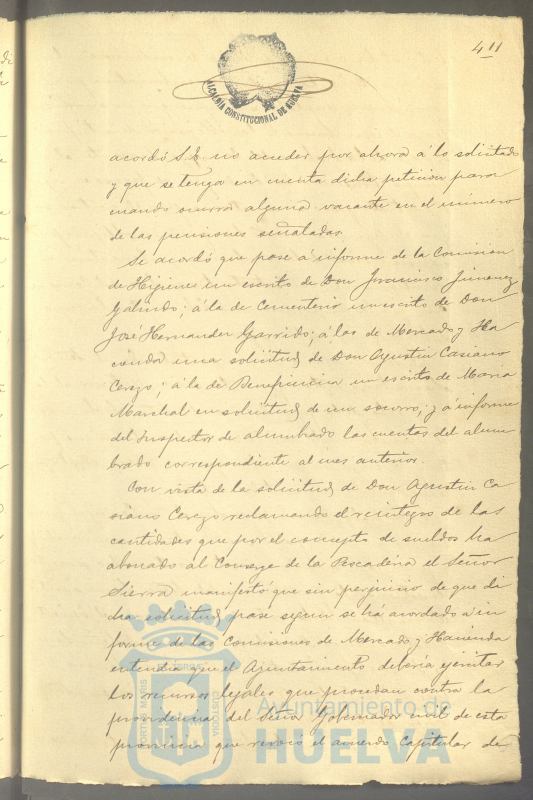 411
ALCALDIA CONSTITUCIONAL DE HUELVA
acordó S.E. no acceder por ahora á lo solicitado
y que se tenga en cuenta dicha peticion para
cuando ocurra alguna vacante en el número
de las pensiones señaladas.
Se acordó que pase á informe de la Comision
de Higiene un escrito de Don Francisco Jimenez
Galindo; á la de Cementerio un escrito de Don
José Hernandez Garrido; á las de Mercado y Ha
cienda una solicitud de Don Agustin Casiano
Cerezo; á la de Beneficencia un escrito de Maria
Marchal en solicitud de un socorro; y á informe
del Inspector de alumbrado las cuentas del alum
brado correspondiente al mes anterior.
Con vista de la solicitud de Don Agustin Ca
siano Cerezo reclamando el reintegro de las
cantidades que por el concepto de sueldos ha
abonado al Conserge de la Pescaderia el Señor
Sierra manifestó que sin perjuicio de que di
cha solicitud pase segun se há acordado á in
forme de las Comisiones de Mercado y Hacienda
entendia que el Ayuntamiento debería ejercitar
los recursos legales que procedan contra la
providencia del Señor Gobernador civil de esta
provincia que revocó el acuerdo capitular de
PORTUS MARIS
CUSTODIA
Ayuntamiento de
HUELVA